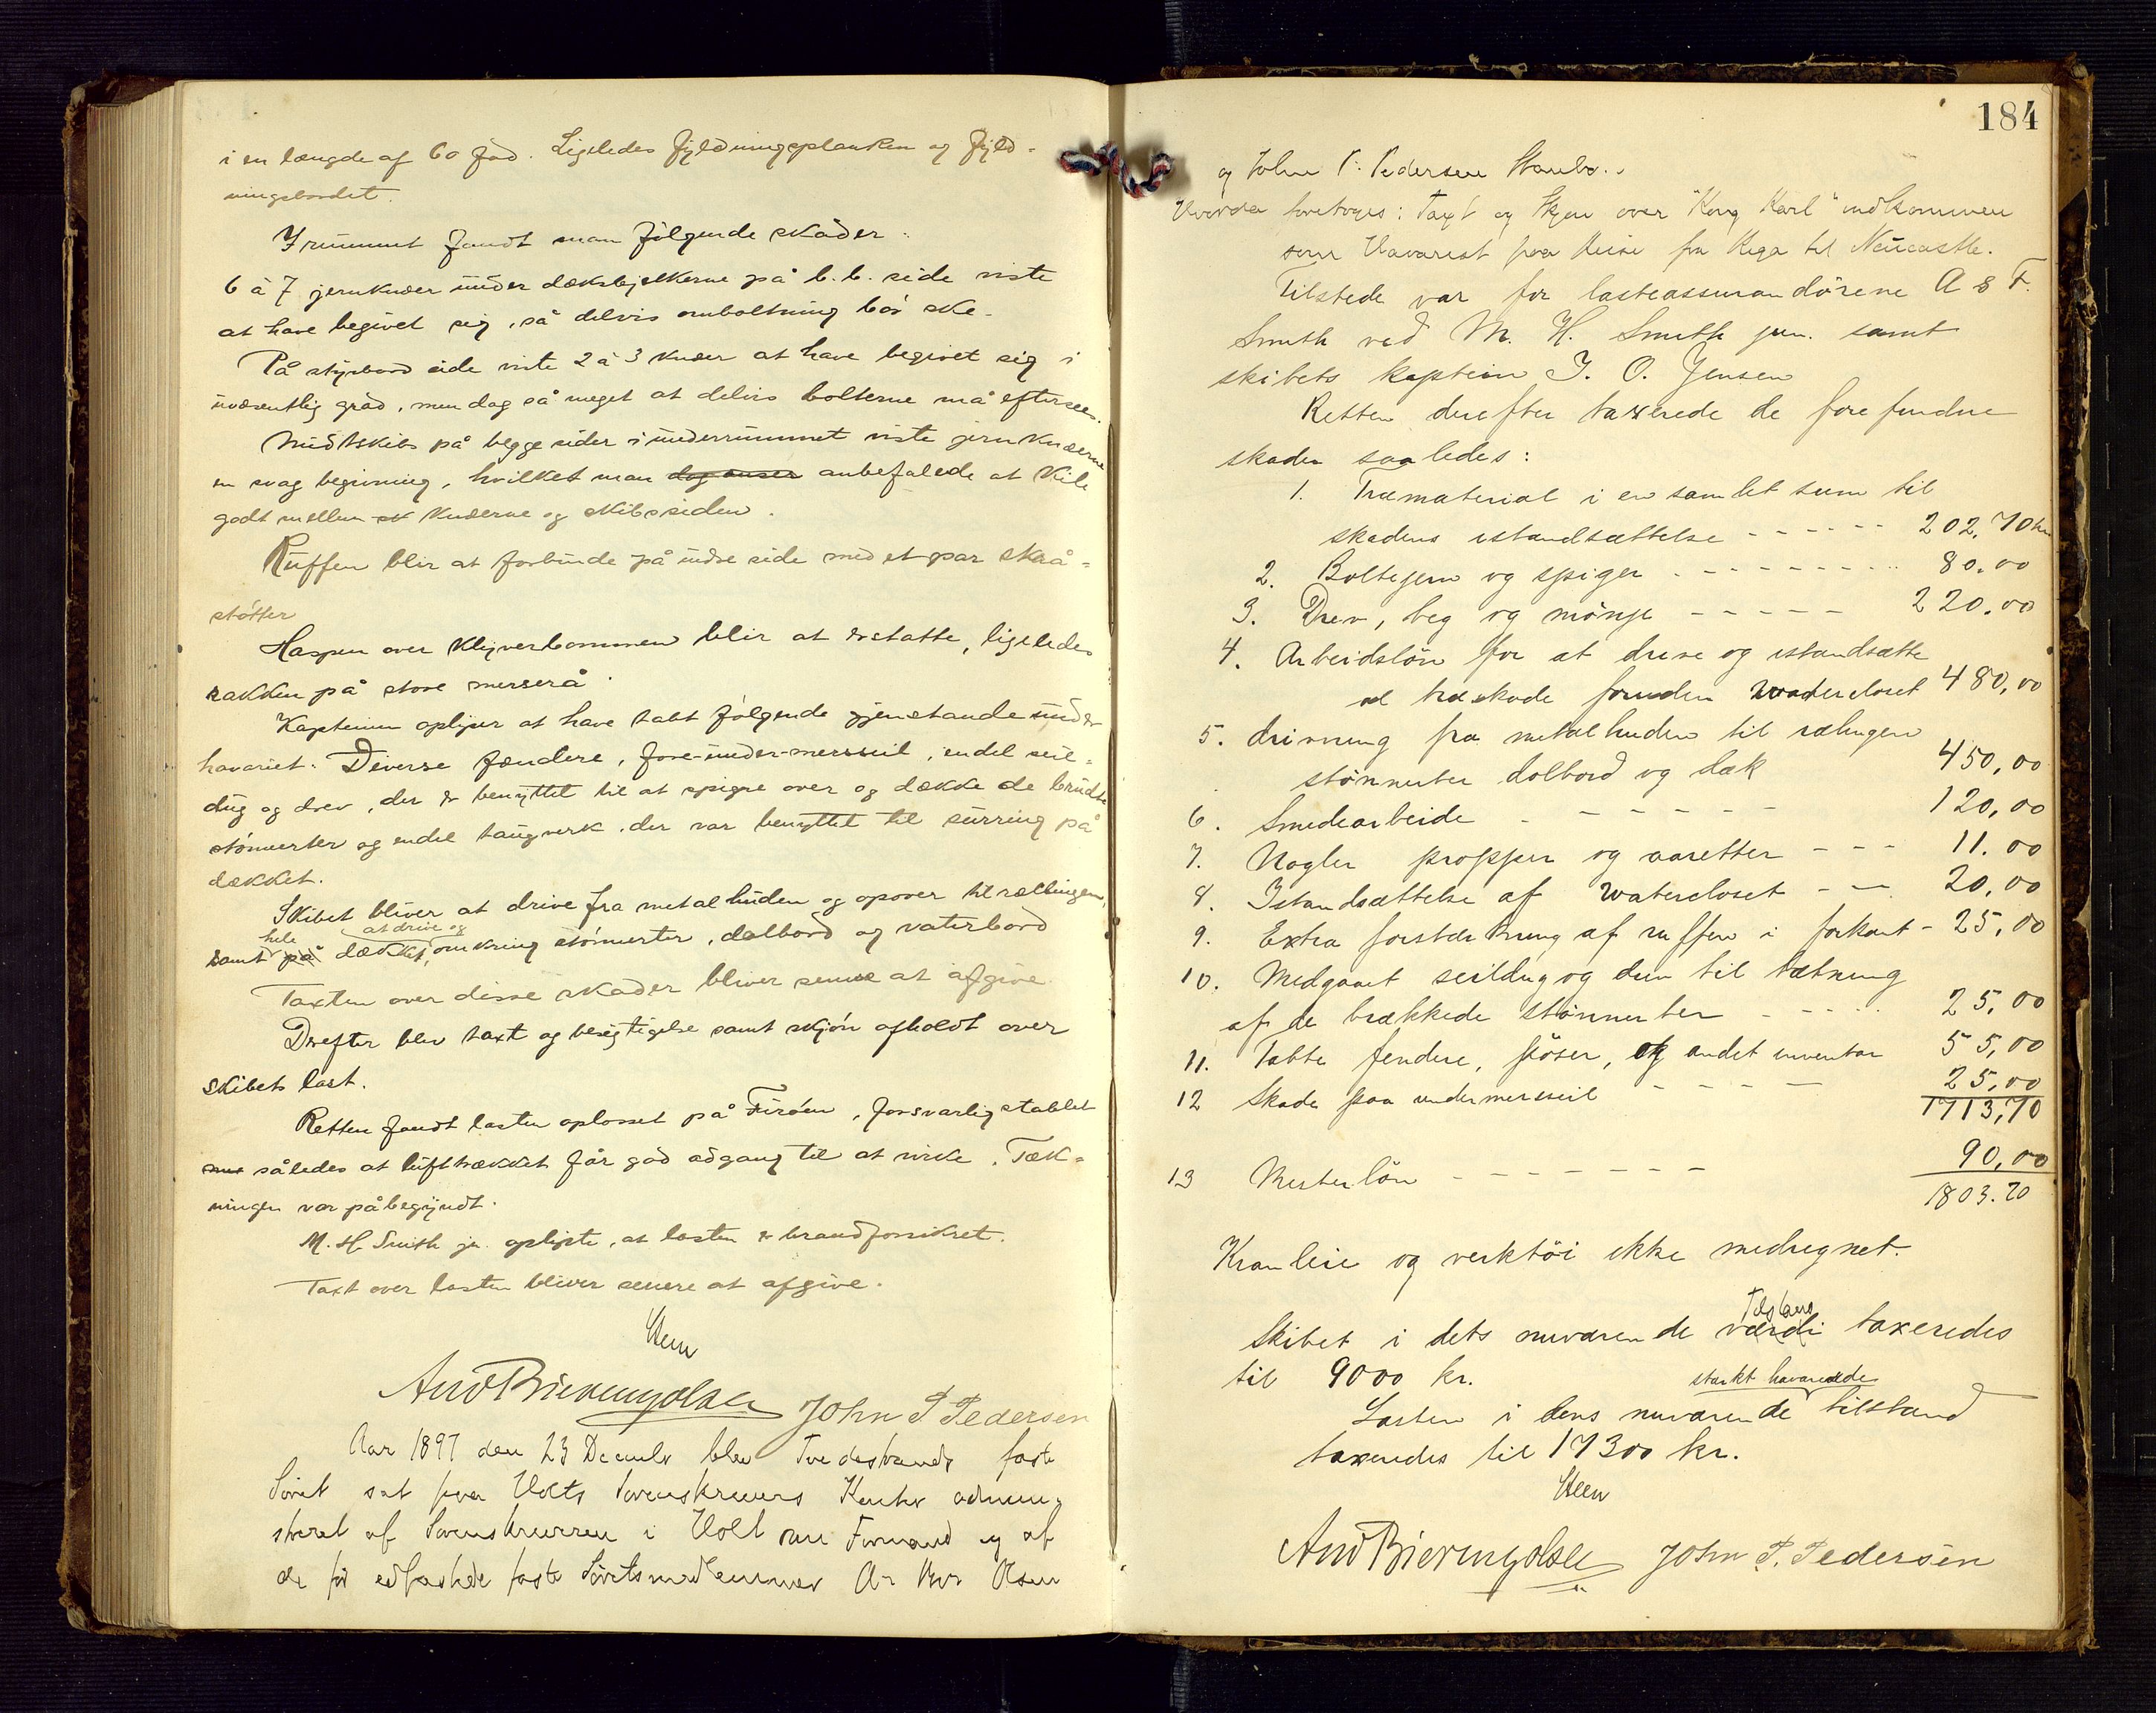 i en længde af 60 fod. Ligeledes fyldningsplanken og fyld-
ningsbordet.
I rummet fandt man følgende skåder:
6 à 7 jernknæer under dæksbjelkerne på b.b. side viste
at have begivet sig, så delvis omboltning bør ske.
På styrbord side viste 2 à 3 knæer at have begivet sig i
uvæsentlig grad, men dog så meget at delvis bolterne må eftersees.
Midtskibs på begge sider i underrummet viste jernknæerne
en svag begivning, hvilket man dog anser anbefalede at kile
godt mellem sk knæerne og skibssiden.
Ruffen blir at forbinde på indre side med et par skrå-
støtter
Haspen over klyverbommen blir at erstatte, ligeledes
rakken på store merserå.
Kapteinen oplyser at have tabt følgende gjenstande under
havariet. Diverse fændere, fore-under-mersseil, endel seil-
dug og drev, der er benyttet til at spigre over og dække de brudte
stønnerter og endel taugverk der var benyttet til surring på
dækket.
Skibet bliver at drive fra metalhuden og opover til rællingen,
hele at drive og
samt på dækket, omkring stønnerter, dolbord og vaterbord
Taxten over disse skåder bliver senere at afgive.
Derefter blev taxt og besigtigelse samt skjøn afholdt over
skibets last.
Retten fandt lasten oplosset på Furøen, forsvarlig stablet
således at lufttrækket får god adgang til at virke. Tæk-
ningen var påbegyndt.
M. H. Smith jr. oplyste, at lasten er brandforsikret.
Taxt over lasten bliver senere at afgive.
Steen
And Bieringolsen John P Pedersen
Aar 1897 den 23 December blev Tvedestrands faste
Söret sat paa Holts Sorenskriveris Kontor admini-
streret af Sorenskriveren i Holt som Formand og af
de før edfæstede faste Söretsmedlemmer A. Olsen
184
og John P. Pedersen Stambo..
Hvorda foretoges: Taxt og Skjøn over "Kong Karl" indkommen
som Havarist paa Reise fra Riga til Newcastle.
Tilstede var for lasteassurandörene A & F.
Smith ved M. H. Smith jun. samt
skibets kaptein J. O. Jensen
Retten derefter taxerede de forefundne
skader saaledes:
1. Træmaterial i en samlet sum til
skadens istandsættelse - - - - - - 202,70 kr
2. Boltejern og spiger - - - - - - - - - 80.00
3. Drev, beg og mönje - - - - - 220.00
4. Arbeidslön for at drive og istandsætte
al træskade foruden watercloset 480,00
5. drivning fra metalhuden til rælingen
stönnerter dolbord og dæk 450,00
6. Smedearbeide - - - - - - 120,00
7. Nagler propper og aaretter - - - 11.00
8. Istandsættelse af watercloset - - 20,00
9. Extra forstærkning af ruffen i forkant - 25,00
10. Medgaaet seildug og drev til tætning
af de brækkede stönnerter - - - - - 25,00
11. Tabte fendere, pöser, og andet inventar 55,00
12 Skade paa undermersseil - - - - 25,00
1713,70
13 Mesterlön - - - - - - 90,00
1803.70
Kranleie og verktöi ikke medregnet.
Tilstand
Skibet i dets nuværende værdi taxeredes
til 9000 kr.
stærkt havarerede
Lasten i dens nuværende tilstand
taxeredes til 17300 kr.
Steen
And Bieringolsen John P. Pedersen